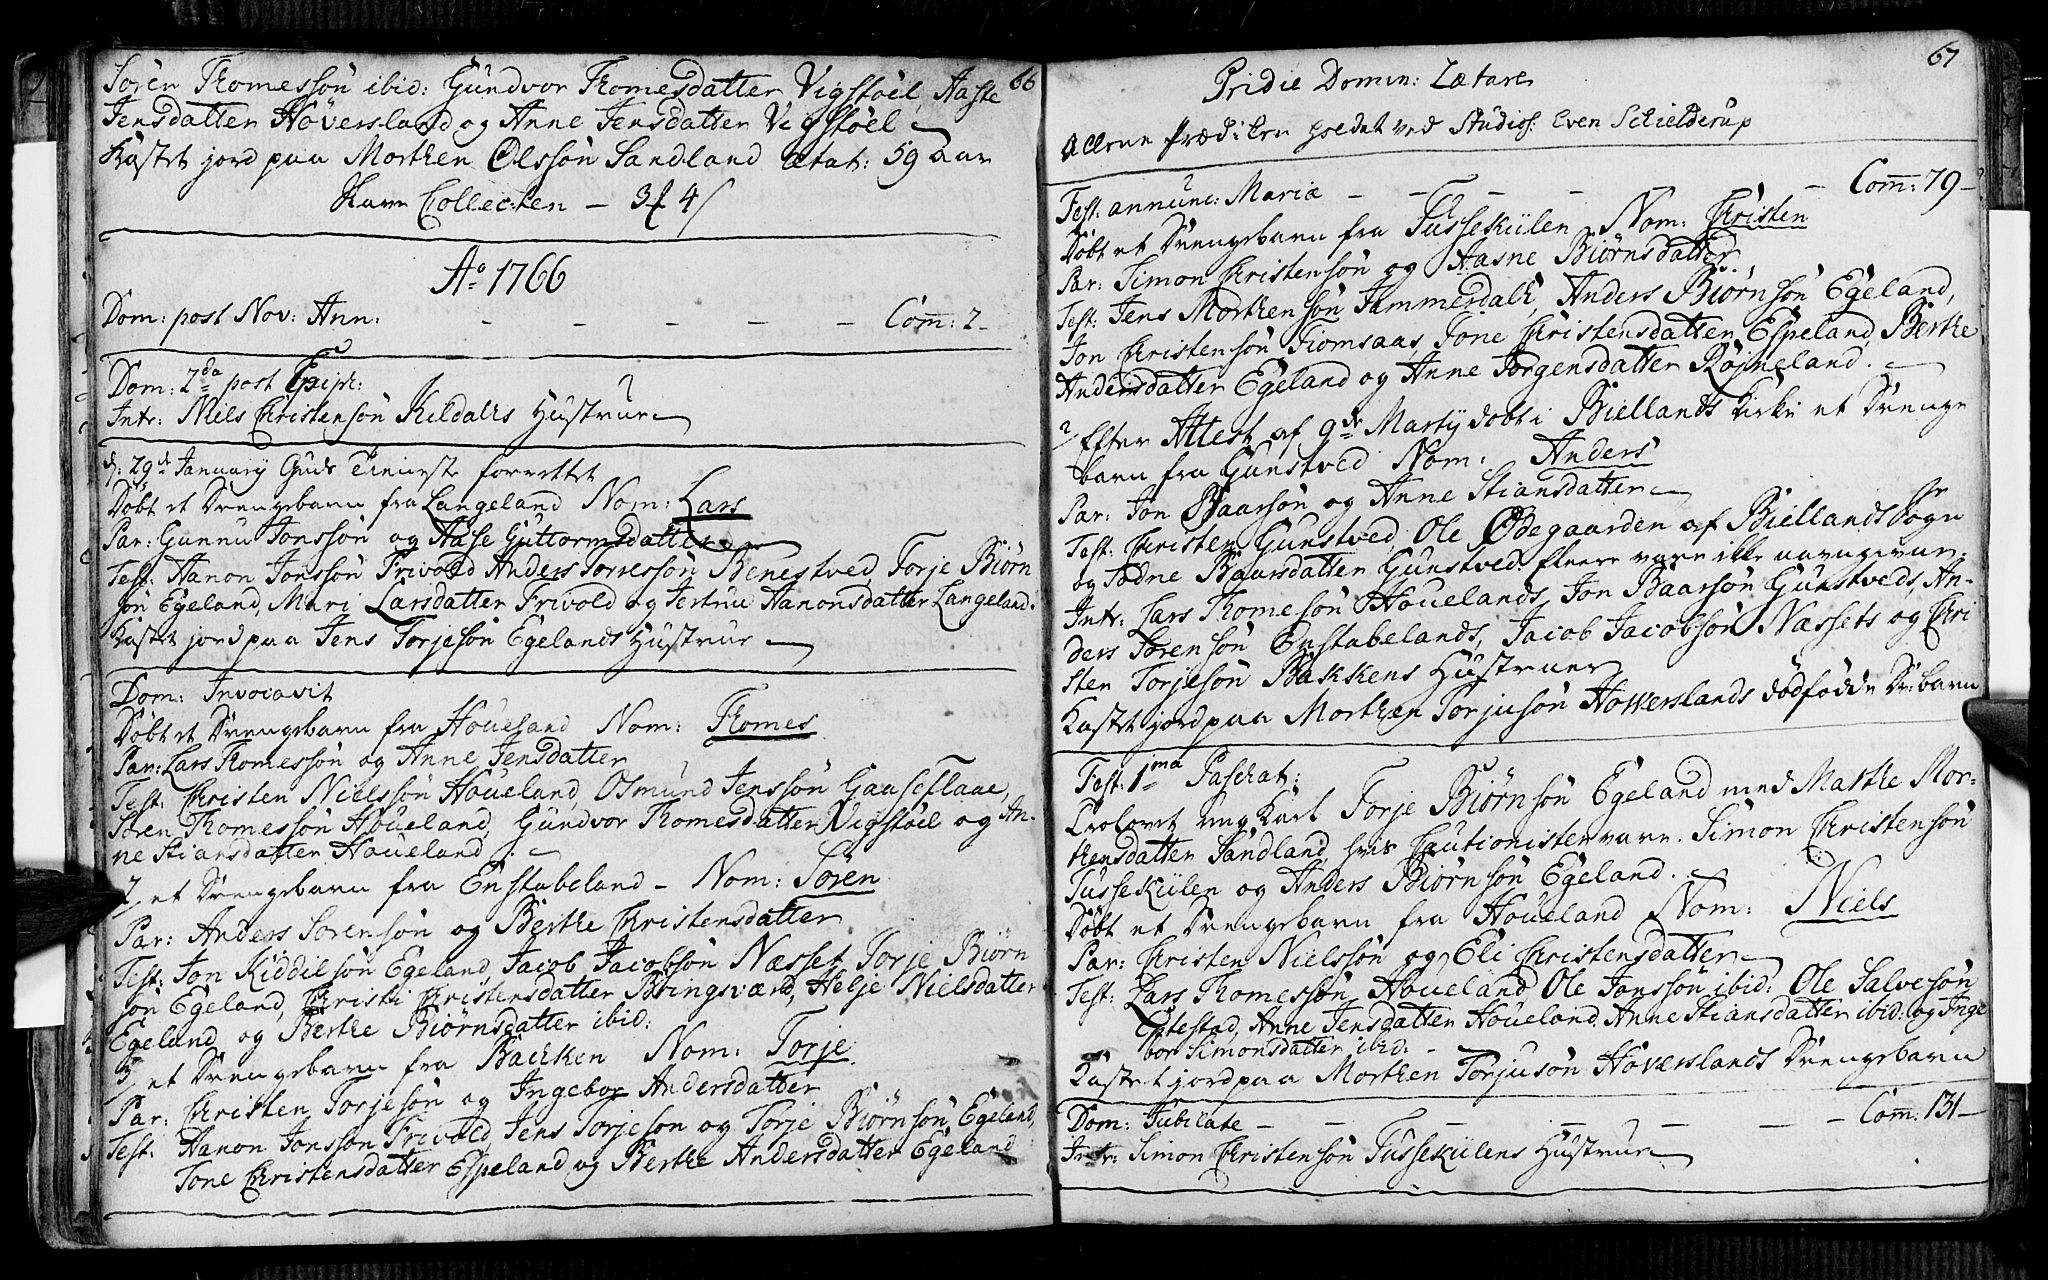 66
Søren Thomessøn ibid: Gundvor Thomesdatter Vigstøel, Aaste
Jensdatter Høversland og Anne Jensdatter Vigstøel
Kastet jord paa Morthen Olssøn Sandland ætat: 59 aar
Collecten – 3 4
Ao 1766
Dom: post Nov: Ann: – – – – – Com: 2
Dom: 2da post Epiph:
Intr: Niels Christensøn Kildahls Hustrue
d: 29de January Guds Tieneste forrettet
Døbt et Drengebarn fra Langeland Nom: Lars
Par: Gunnu Jonssøn og Aasse Guttormsdatter
Test: Aanon Jonssøn Frivold Anders Torressøn Benestved, Torje Biørn
søn Egeland, Mari Larsdatter Frivold og Jertrue Aanonsdatter Langeland.
Kastet jord paa Jens Torjesøn Egelands Hustrue
Dom: Invocavit
Døbt et Drengebarn fra Houeland Nom: Thomes
Par: Lars Thomessøn og Anne Jensdatter
Test: Christen Nielssøn Houeland, Osmund Jenssøn Gaaseflaae,
Søren Thomessøn Houeland, Gundvor Thomesdatter Vigstøel og An-
ne Stiansdatter Houeland.
2, et Drengebarn fra Enstabeland – Nom: Søren
Par: Anders Sørensøn og Berthe Christensdatter
Test: Jon Kiddilsøn Egeland, Jacob Jacobsøn Næsset, Torje Biørn
søn Egeland, Christi Christensdatter Bringsværd, Helje Nielsdatter
Egeland og Berthe Biørnsdatter ibid:
3, et Drengebarn fra Backken Nom: Torje
Par: Christen Torjesøn og Ingebor Andersdatter
Test: Aanon Jonsson Frivold, Jens Torjeson og Torje Biørnsøn Egeland,
Tone Christensdatter Espeland og Berthe Andersdatter Egeland
67
Pridie Domin: Lætare
Allene Prædiken holdet ved Studios: Even Schielderup
Fest: annunc: Mariæ – – – – – Com: 79
Døbt et Drengebarn fra Tussekülen Nom: Christen
Par: Simon Christensøn og Aasne Biørnsdatter.
Test: Jens Morthensøn Jammerdahl, Anders Biørnsøn Egeland,
Jon Christensøn Tiomsaas, Tone Christensdatter Espeland, Berthe
Andersdatter Egeland og Anne Jørgensdatter Røjneland.
2, Efter Attest af 9de Martij døbt i Biellands Kirke et Drenge
barn fra Gunstved Nom: Anders
Par: Jon Baarsøn og Anne Stiansdatter
Test: Christen Gunstved, Ole Ødegaarden af Biellands Sogn
og Todne Baarsdatter Gunstved, fleere vare ikke navngivne.
Intr: Lars Thomesøn Houelands, Jon Baarsøn Gunstveds, An-
ders Sørensøn Enstabelands, Jacob Jacobsøn Næssets og Chri
sten Torjesøn Bakkens Hustruer
Kastet jord paa Morthen Torjusøn Howerslands dødfødde Dr: barn
Fest: 1ma Paschat:
Trolovet ung Karl Torje Biørnsøn Egeland med Marthe Mor-
thensdatter Sandland, hvis Cautionister vare. Simon Christensøn
Tussekülen og Anders Biørnsøn Egeland.
Døbt et Drengebarn fra Houeland Nom: Niels
Par: Christen Nielssøn og Eli Christensdatter
Test: Lars Thomessøn Houeland, Ole Jonssøn ibid: Ole Salvesøn
Eptestad, Anne Jensdatter Houeland, Anne Stiansdatter ibid: og Inge
bor Simonsdatter ibid:
Kastet jord paa Morthen Torjusøn Høverslands Drengebarn
Dom: Jubilate – – – – – Com: 131
Intr: Simon Christensøn Tussekülens Hustrue